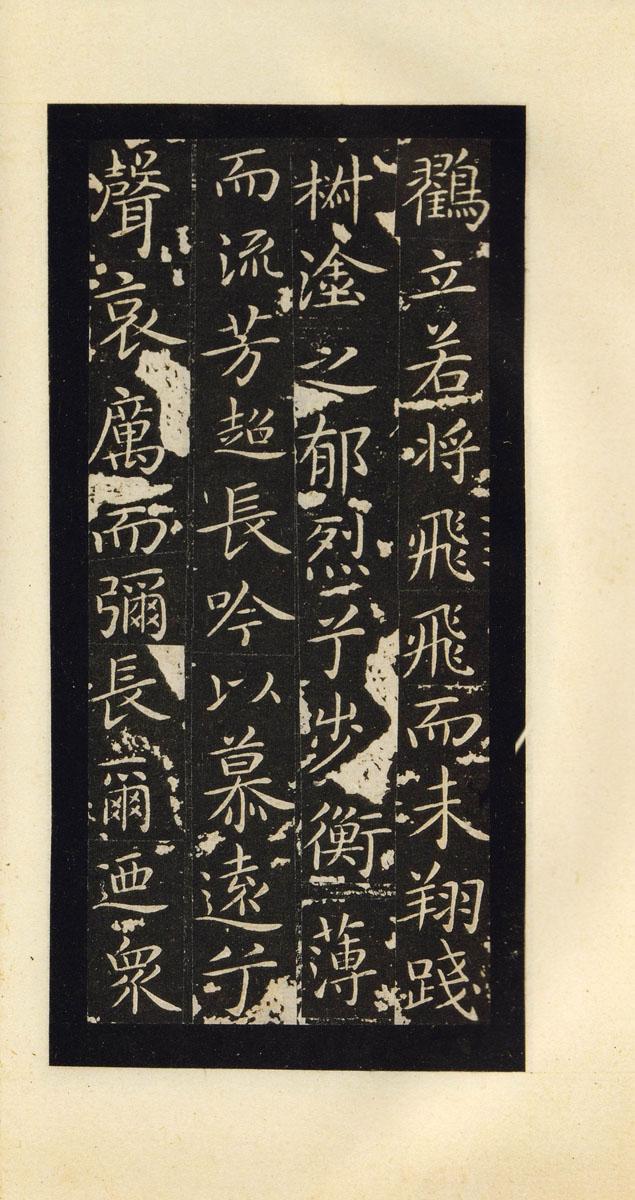 鶴立若将飛飛而未翔踐
椒塗之郁烈兮步衡薄
而流芳超長吟以慕遠兮
聲哀厲而彌長爾迺衆